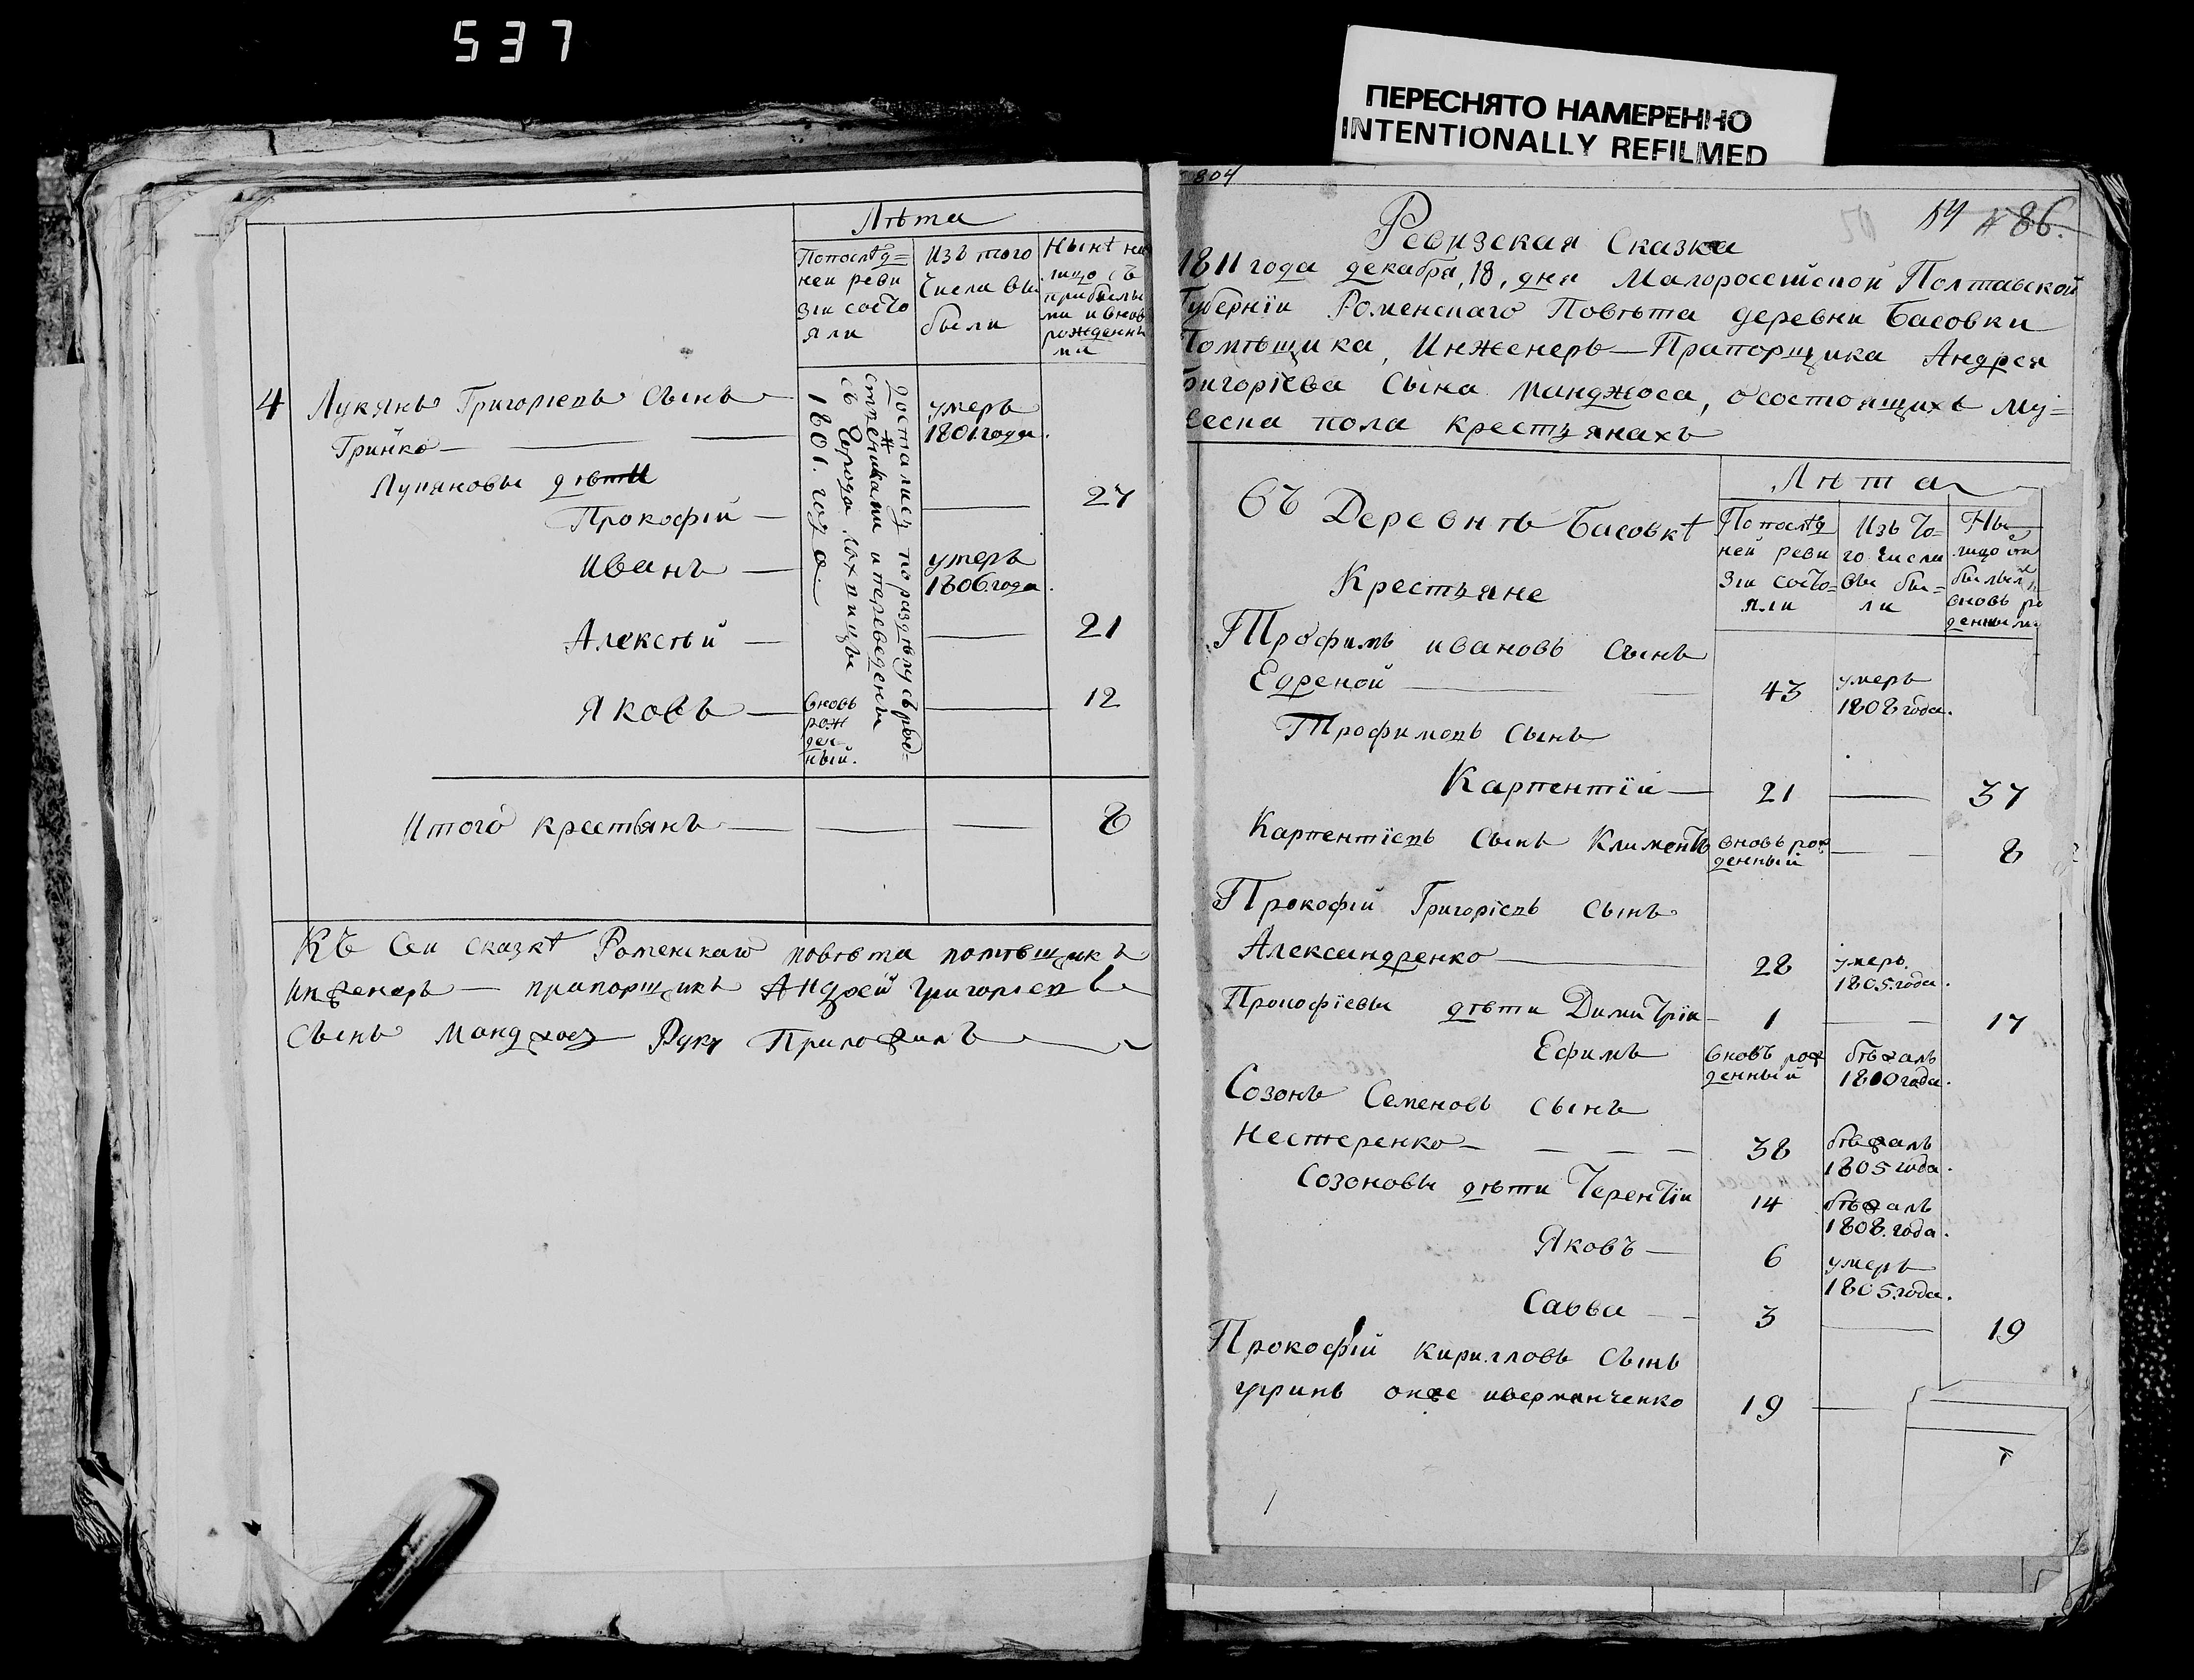 537
ПЕРЕСНЯТО НАМЕРЕННО
INTENTIONALLY REFILMED
Лѣта
Попослѣд=
ней реви
зіи состо
яли
Изъ того
числа вы
были
Нынѣ на
лицо съ
прибылы
ми и вновь
рожденны
ми
4 Лукянъ Григоріевъ Сынъ
Гринко
умеръ
1801 года.
Лукяновы дѣти
Прокофій — 27
Иванъ — умеръ
1806 года.
Алексѣй — 21
Яковъ — вновь
рож
ден
ный. 12
Достались по раздѣлу съ род=
ственниками и переведены
съ города Лохвицы
1801. года.
Итого крестьянъ — 8
Къ Сей сказкѣ Роменскаго повѣта помѣщикъ
инженеръ — прапорщикъ Андрей Григоріевъ
Сынъ Манджосъ Руку Приложилъ
804
54 86.
Ревизская Сказка
1811 года декабря, 18, дня Малороссійской Полтавской
Губерніи Роменскаго Повѣта деревни Басовки
Помѣщика, Инженеръ—Прапорщика Андрея
Григоріева Сына Манджоса, о состоящихъ му=
ска пола крестьянахъ
Въ Деревнѣ Басовкѣ
Крестьяне
Лѣта
Попослѣд
ней реви
зіи состо=
яли
Изъ то=
го числа
вы бы=
ли
Ны
лицо
былы
вновь ро
денными
Трофимъ ивановъ Сынъ
Едреной — 43 умеръ
1808 года.
Трофимовъ Сынъ
Карпентїй — 21 — 37
Карпентїевъ Сынъ Климентъ вновь рож
денный — 8
Прокофій Григорїевъ Сынъ
Александренко — 28 умеръ
1805. года.
Прокофїевы дѣти Димитрїи — 1 — 17
Ефимъ вновь рож
денный бѣжалъ
1810 года.
Созонъ Семеновъ сынъ
Нестеренко — 38 бѣжалъ
1805 года.
Созоновы дѣти Терентїи 14 бѣжалъ
1808. года.
Яковъ — 6 умеръ
1805. года.
Савва — 3 — 19
Прокофїй Кириловъ Сынъ
онже 19 —